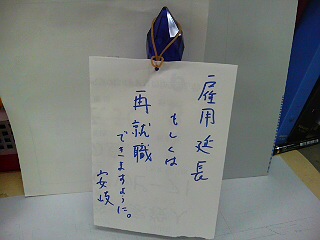 雇用延長
もしくは
再就職
できますように。
安岐